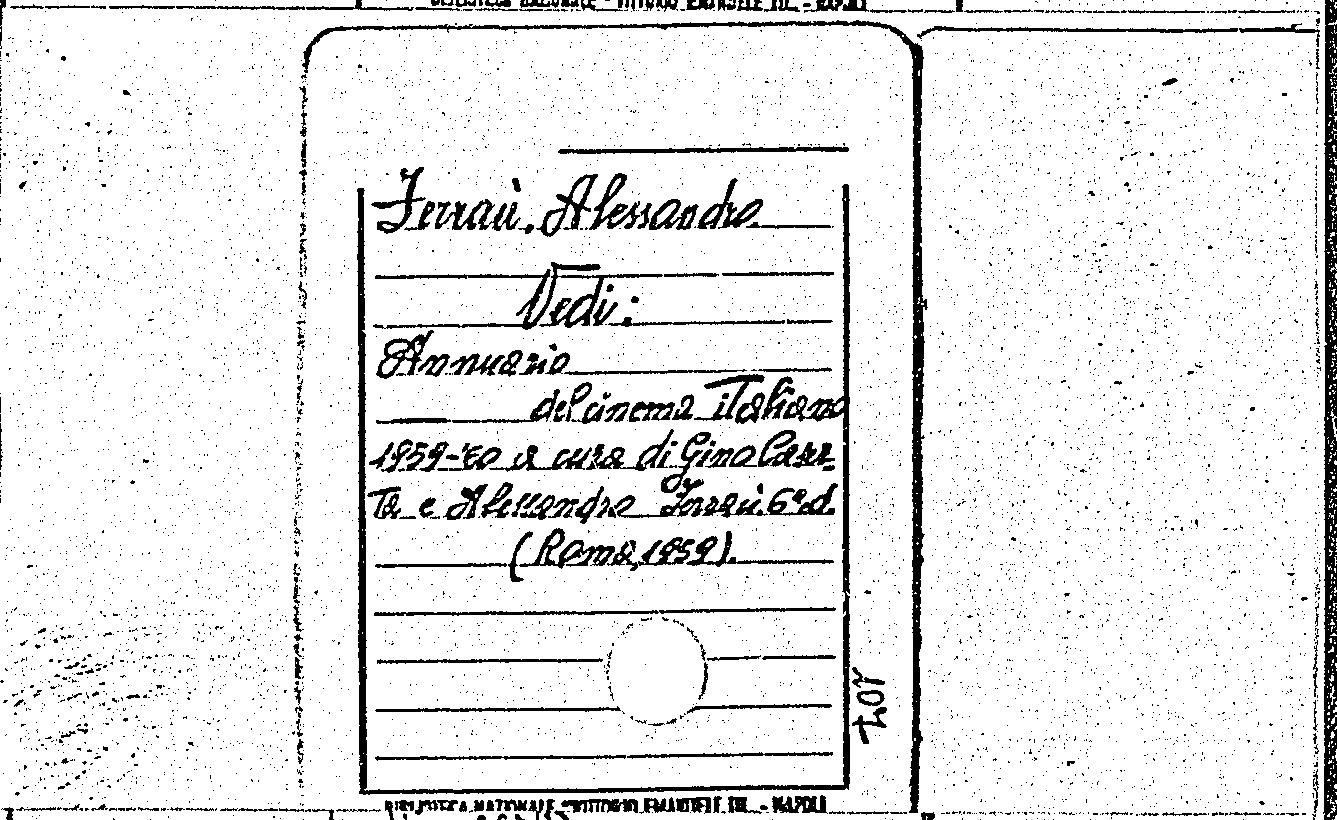 BIBLIOTECA NAZIONALE "VITTORIO EMANUELE III. - NAPOLI
Ferraù, Alessandro.
Vedi:
Annuario
del cinema italiano
1959-'60 a cura di Gino Caser-
ta e Alessandro Ferraù. 6ª ed.
(Roma, 1959).
107
BIBLIOTECA NAZIONALE "VITTORIO EMANUELE III. - NAPOLI